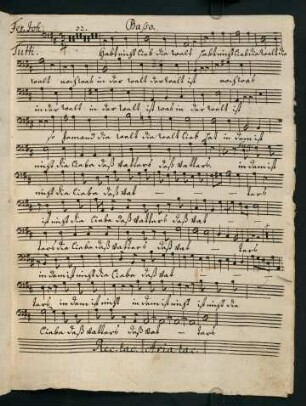 Baßo.
Tutti.
Habt nicht lieb die Welt habt nicht lieb die Welt die
Welt noch was in der Welt der Welt ist noch was
in der Welt in der Welt ist was in der Welt ist
So jemand die Welt die Welt lieb hat in dem ist
nicht die Liebe deß Vatters deß Vatters in dem ist
nicht die Liebe deß Vat - - ters
ist nicht die Liebe deß Vatters deß Vat
ters die Liebe deß Vatters deß Vat - ters
in dem ist nicht die Liebe deß Vat - -
ters in dem ist nicht in dem ist nicht ist nicht die
Liebe deß Vatters deß Vat - - ters
Rec. tac. Aria tac.